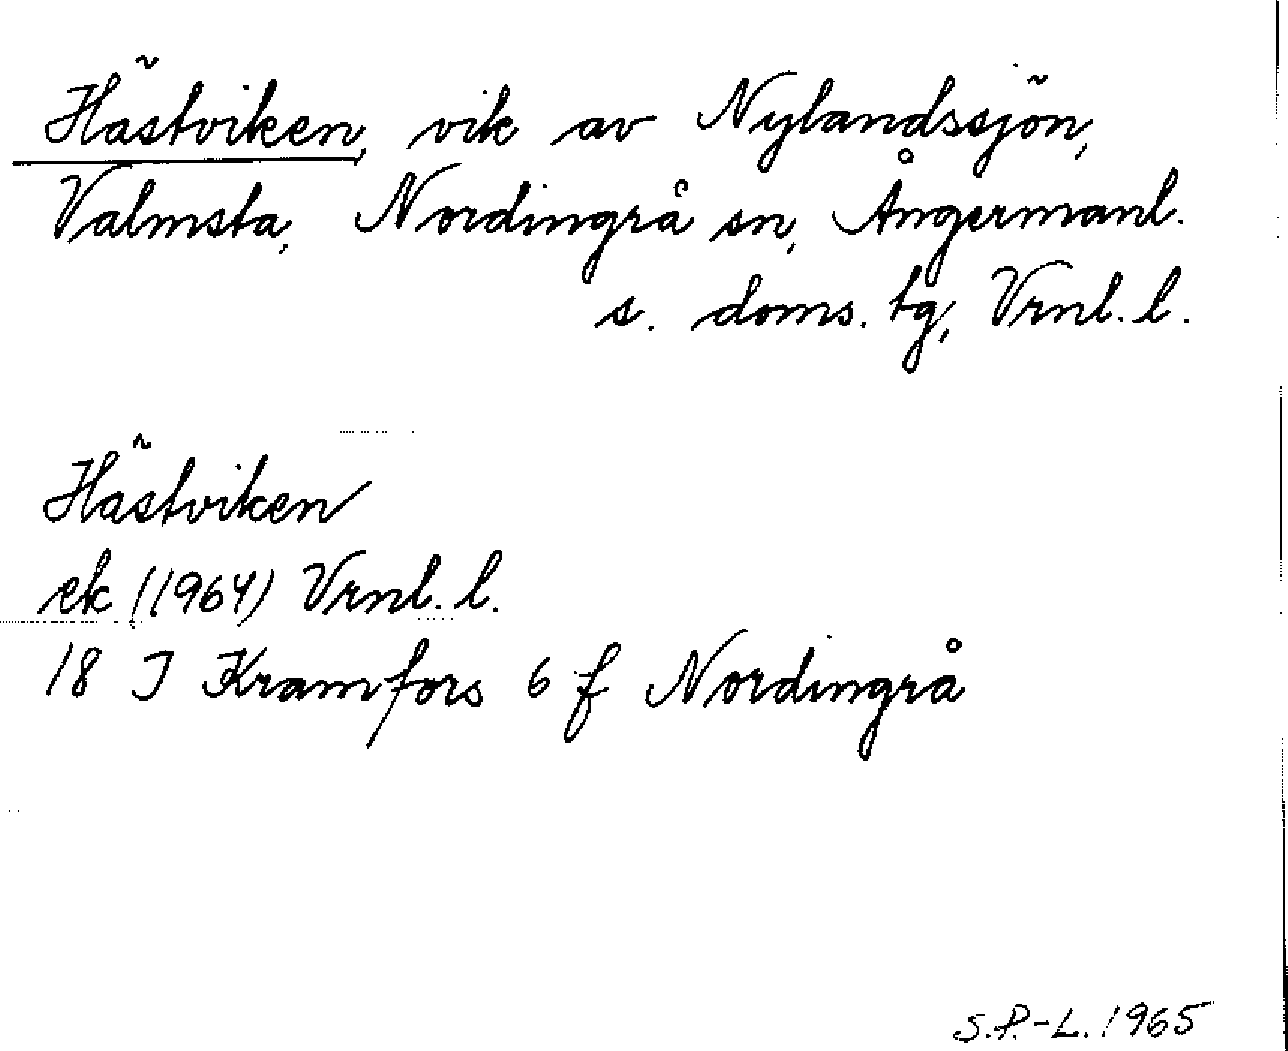 Hästviken, vik av Nylandssjön,
Valmsta, Nordingrå sn, Ångermanl.
s. doms. tg, Vrnl. l.
Hästviken
ek (1964) Vrnl. l.
18 J Kramfors 6 f Nordingrå
S.P.-L. 1965